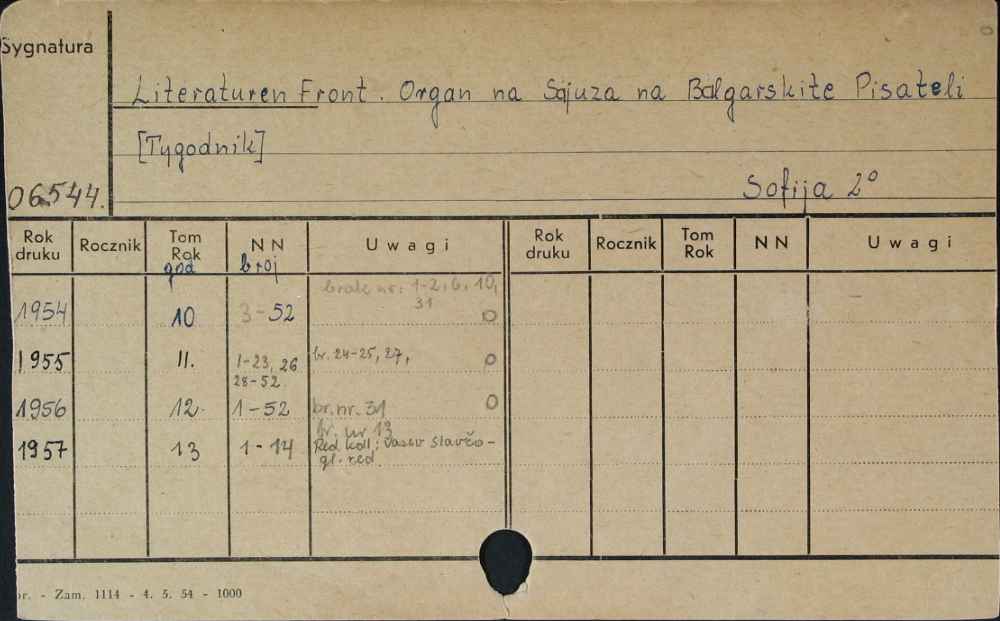 Sygnatura
Literaturen Front. Organ na Sǎjuza na Bǎlgarskite Pisateli
[Tygodnik]
06544.
Sofija 2°
Rok druku Rocznik Tom Rok NN Uwagi Rok druku Rocznik Tom Rok NN Uwagi
god broj
brak nr: 1-2, 6, 10,
31
1954 10 3-52 0
1955 11. 1-23, 26 br. 24-25, 27, 0
28-52
1956 12. 1-52 br. nr. 31 0
br. nr 13
1957 13 1-14 Red. koll: Vasev Slavčo-
gl. red.
- Zam. 1114 - 4. 5. 54 - 1000